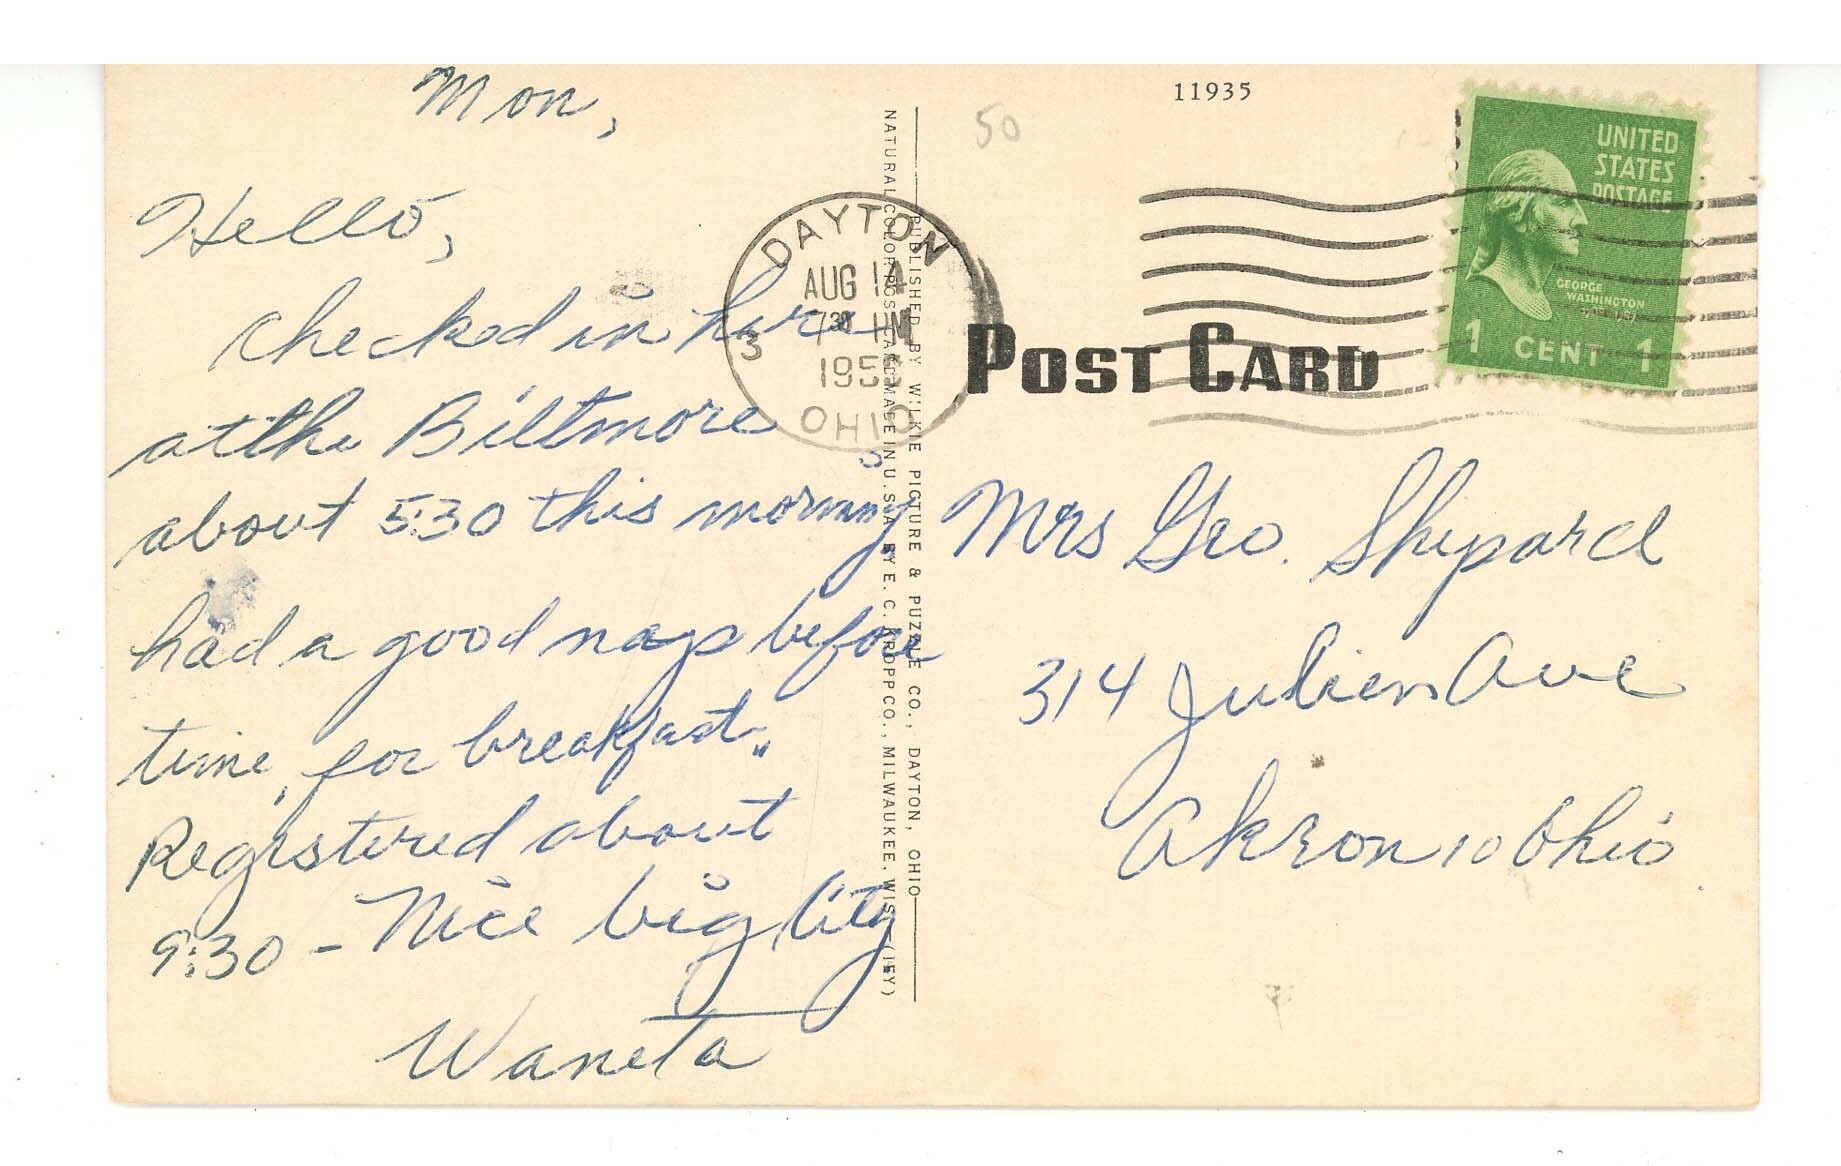 Mon,
Hello,
Checked in here
at the Biltmore
about 5:30 this morning
had a good nap before
time for breakfast.
Registered about
9:30 - Nice big City
Waneta
NATURAL COLOR POST CARD MADE IN U.S.A. BY E. C. KROPP CO., MILWAUKEE, WIS. (IEY)
PUBLISHED BY WILKIE PICTURE & PUZZLE CO., DAYTON, OHIO
50
11935
DAYTON
AUG 14
7 30 PM
195
3
OHIO
POST CARD
UNITED
STATES
POSTAGE
GEORGE
WASHINGTON
1 CENT 1
Mrs Geo. Shepard
314 Julien Ave
Akron 10 Ohio